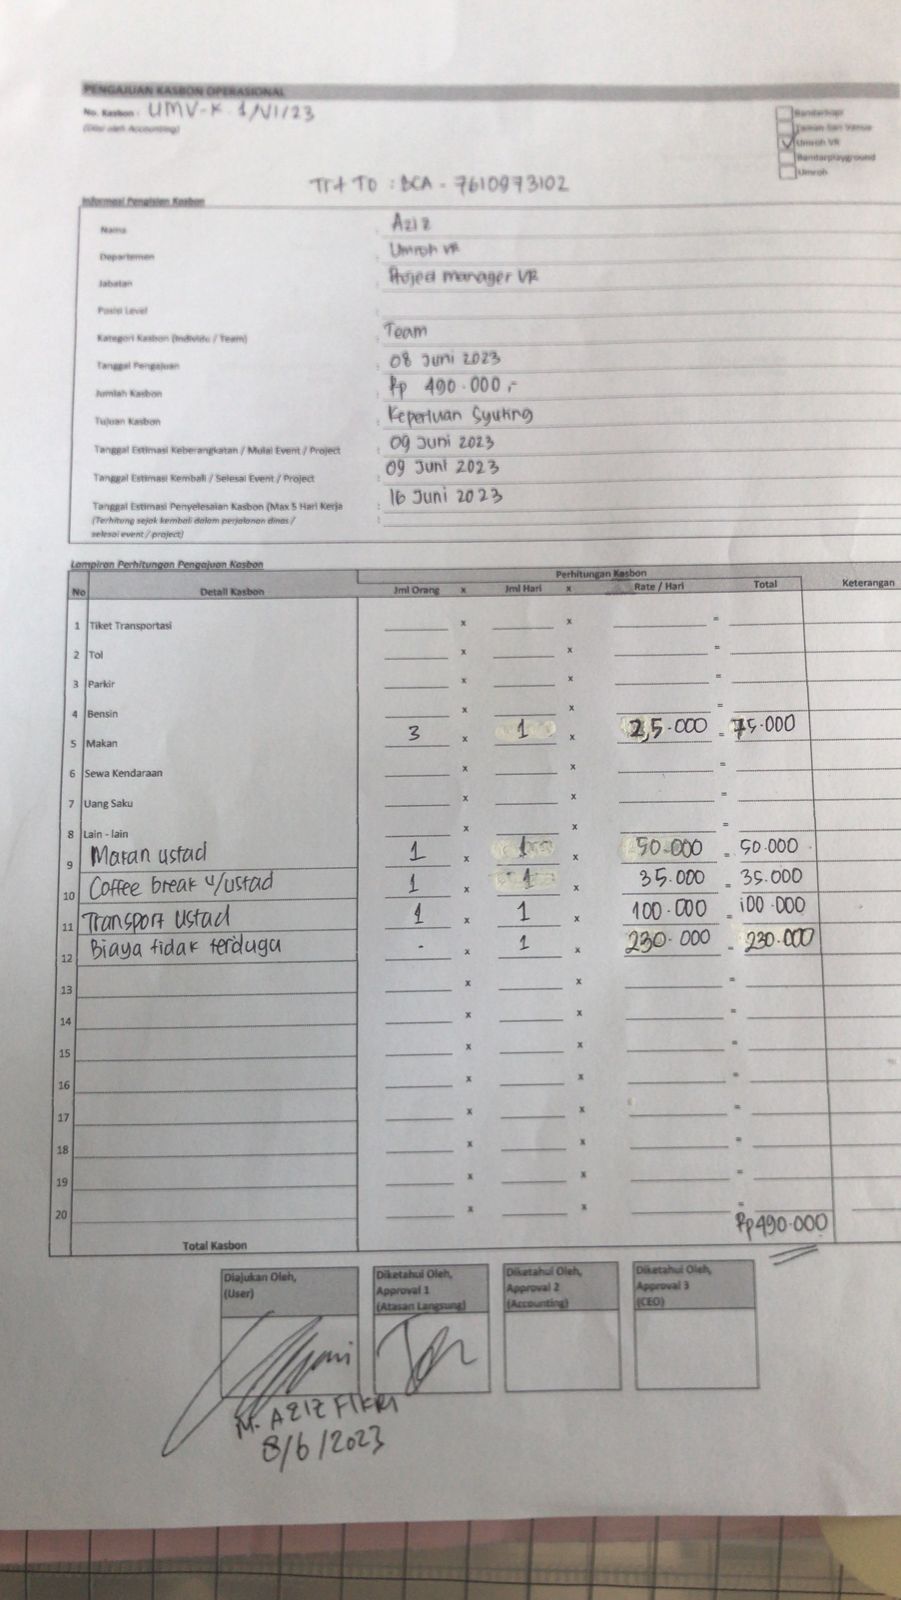 PENGAJUAN KASBON OPERASIONAL
No. Kasbon : UMV-K 1/VI/23
(Diisi oleh Accounting)
Banitarkopi
Taman Sari Venue
Umroh VR
Banitarplayground
Umroh
Trf TO : BCA - 7610973102
Informasi Pengisian Kasbon
Nama : Aziz
Departemen : Umroh VR
Jabatan : Project manager VR
Posisi Level
Kategori Kasbon (Individu / Team) : Team
Tanggal Pengajuan : 08 Juni 2023
Jumlah Kasbon : Rp 490.000,-
Tujuan Kasbon : Keperluan Syuting
Tanggal Estimasi Keberangkatan / Mulai Event / Project : 09 Juni 2023
Tanggal Estimasi Kembali / Selesai Event / Project : 09 Juni 2023
Tanggal Estimasi Penyelesaian Kasbon (Max 5 Hari Kerja : 16 Juni 2023
(Terhitung sejak kembali dalam perjalanan dinas / :
selesai event / project)
Lampiran Perhitungan Pengajuan Kasbon
Perhitungan Kasbon
No Detail Kasbon Jml Orang x Jml Hari x Rate / Hari Total Keterangan
1 Tiket Transportasi x x =
2 Tol x x =
3 Parkir x x =
4 Bensin x x =
5 Makan 3 x 1 x 25.000 = 75.000
6 Sewa Kendaraan x x =
7 Uang Saku x x =
8 Lain - lain x x
9 Makan ustad 1 x 1 x 50.000 = 50.000
10 Coffee break u/ustad 1 x 1 x 35.000 = 35.000
11 Transport ustad 1 x 1 x 100.000 = 100.000
12 Biaya tidak terduga - x 1 x 230.000 = 230.000
13 x x =
14 x x =
15 x x =
16 x x =
17 x x =
18 x x =
19 x x =
20 x x =
Total Kasbon Rp 490.000
Diajukan Oleh,
(User)
Diketahui Oleh,
Approval 1
(Atasan Langsung)
Diketahui Oleh,
Approval 2
(Accounting)
Diketahui Oleh,
Approval 3
(CEO)
M. AZIZ FIKRI
8/6/2023